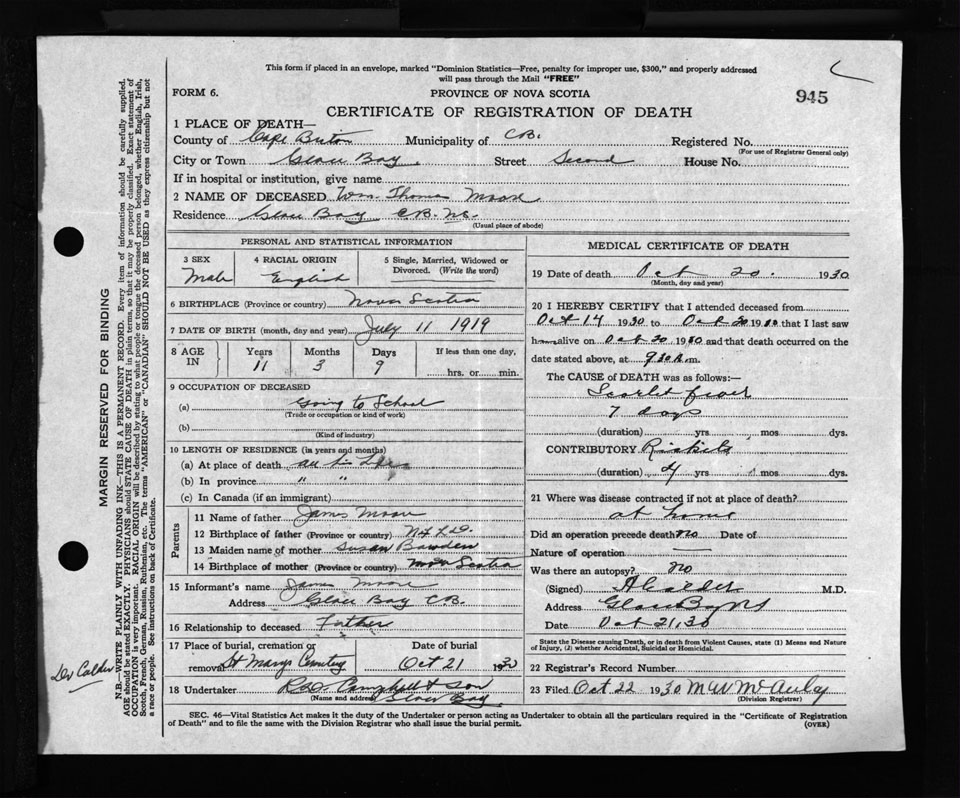 This form if placed in an envelope, marked "Dominion Statistics—Free, penalty for improper use, $300," and properly addressed
will pass through the Mail "FREE"
FORM 6.
PROVINCE OF NOVA SCOTIA
945
CERTIFICATE OF REGISTRATION OF DEATH
1 PLACE OF DEATH—
County of Cape Breton Municipality of C.B. Registered No.
(For use of Registrar General only)
City or Town Glace Bay Street Second House No.
If in hospital or institution, give name
2 NAME OF DECEASED Wm. Thomas Moore
Residence Glace Bay C.B. N.S.
(Usual place of abode)
PERSONAL AND STATISTICAL INFORMATION
3 SEX Male
4 RACIAL ORIGIN English
5 Single, Married, Widowed or Divorced. (Write the word)
6 BIRTHPLACE (Province or country) Nova Scotia
7 DATE OF BIRTH (month, day and year) July 11 1919
8 AGE IN Years 11 Months 3 Days 9 If less than one day, hrs. or min.
9 OCCUPATION OF DECEASED
(a) Going to School
(Trade or occupation or kind of work)
(b)
(Kind of industry)
10 LENGTH OF RESIDENCE (in years and months)
(a) At place of death all his life
(b) In province " "
(c) In Canada (if an immigrant)
Parents
11 Name of father James Moore
12 Birthplace of father (Province or country) Nfld.
13 Maiden name of mother Susan Bowden
14 Birthplace of mother (Province or country) Nova Scotia
15 Informant's name James Moore
Address Glace Bay C.B.
16 Relationship to deceased Father
17 Place of burial, cremation or removal St Marys Cemetery
Date of burial Oct 21 1930
18 Undertaker Campbell & Son
(Name and address) Glace Bay
MEDICAL CERTIFICATE OF DEATH
19 Date of death Oct 20. 1930
(Month, day and year)
20 I HEREBY CERTIFY that I attended deceased from
Oct 14 1930 to Oct 20 1930 that I last saw
him alive on Oct 20 1930 and that death occurred on the
date stated above, at 9.30 m.
The CAUSE of DEATH was as follows:—
Scarlet fever
7 days
(duration) yrs. mos. dys.
CONTRIBUTORY
(duration) 4 yrs. mos. dys.
21 Where was disease contracted if not at place of death?
at home
Did an operation precede death? no Date of
Nature of operation —
Was there an autopsy? no
(Signed) A Calder M.D.
Address Glace Bay NS
Date Oct 21, 30
State the Disease causing Death, or in death from Violent Causes, state (1) Means and Nature
of Injury, (2) whether Accidental, Suicidal or Homicidal.
22 Registrar's Record Number
23 Filed Oct 22 1930 M W McAuley
(Division Registrar)
SEC. 46—Vital Statistics Act makes it the duty of the Undertaker or person acting as Undertaker to obtain all the particulars required in the "Certificate of Registration
of Death" and to file the same with the Division Registrar who shall issue the burial permit.
(OVER)
MARGIN RESERVED FOR BINDING
N.B.—WRITE PLAINLY WITH UNFADING INK—THIS IS A PERMANENT RECORD. Every item of information should be carefully supplied.
AGE should be stated EXACTLY. PHYSICIANS should STATE CAUSE OF DEATH in plain terms, so that it may be properly classified. Exact statement of
OCCUPATION is very important. RACIAL ORIGIN will be described by stating to what people or tongue the deceased person belonged, whether English, Irish,
Scotch, French, German, Russian, Ruthenian, etc. The terms "AMERICAN" or "CANADIAN" SHOULD NOT BE USED as they express citizenship but not
a race or people. See instructions on back of Certificate.
Dr Calder